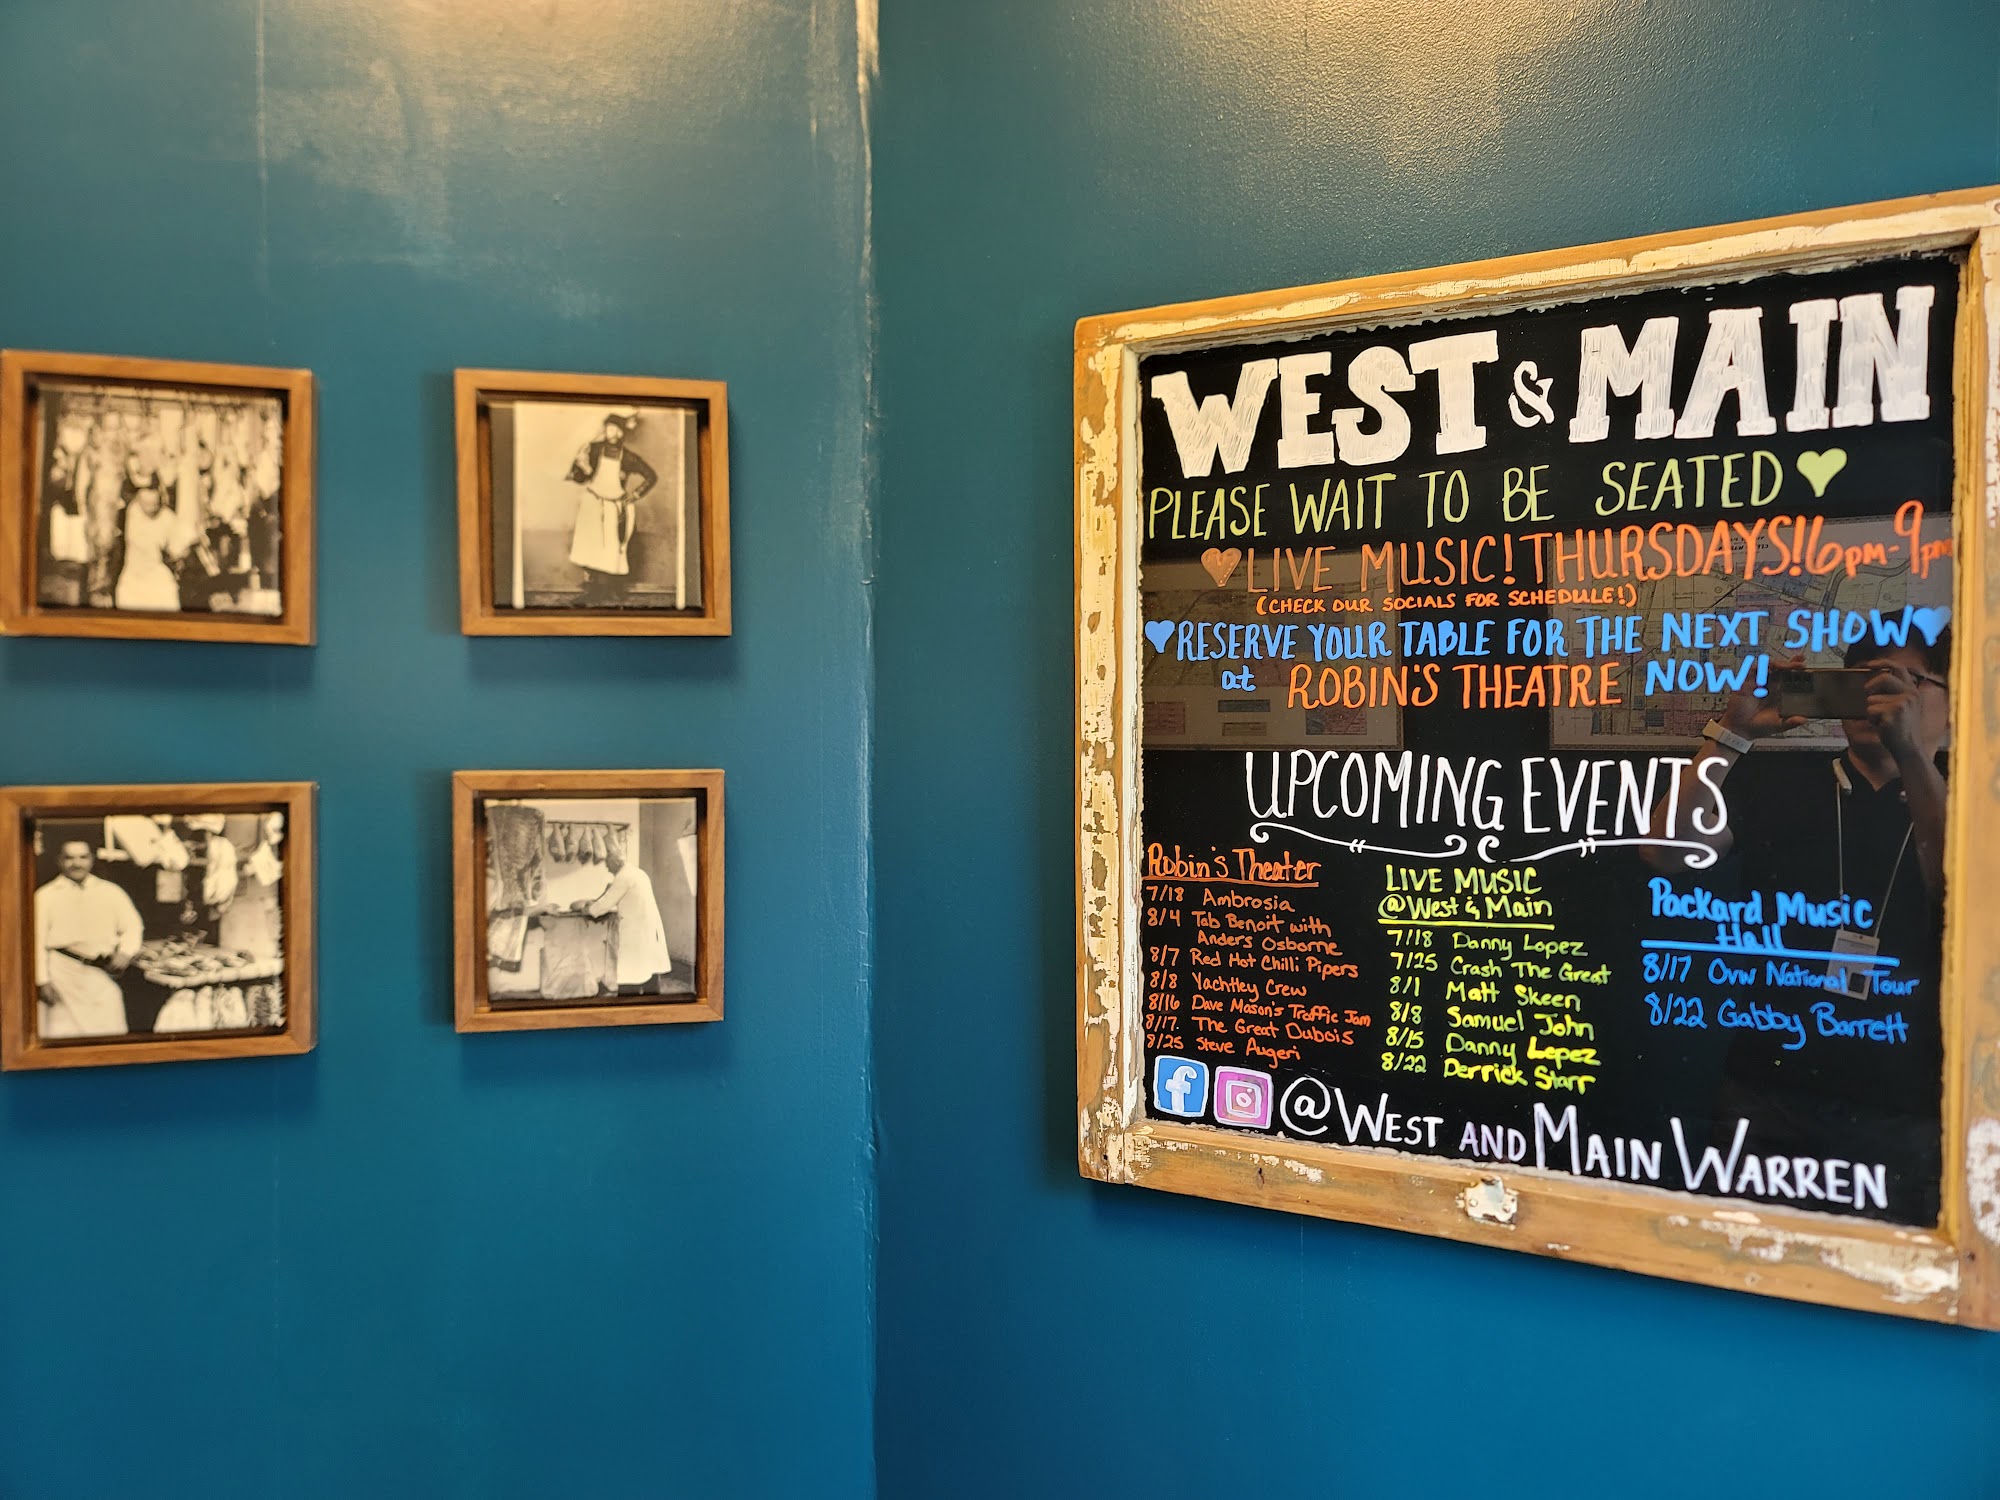 WEST & MAIN
PLEASE WAIT TO BE SEATED
LIVE MUSIC! THURSDAYS! 6pm-9pm
(CHECK OUR SOCIALS FOR SCHEDULE!)
RESERVE YOUR TABLE FOR THE NEXT SHOW
at ROBIN'S THEATRE NOW!
UPCOMING EVENTS
Robin's Theater
7/18 Ambrosia
8/4 Tab Benoit with
Anders Osborne
8/7 Red Hot Chilli Pipers
8/8 Yachtley Crew
8/16 Dave Mason's Traffic Jam
8/17. The Great Dubois
8/25 Steve Augeri
LIVE MUSIC
@West & Main
7/18 Danny Lopez
7/25 Crash The Great
8/1 Matt Skeen
8/8 Samuel John
8/15 Danny Lopez
8/22 Derrick Starr
Packard Music
Hall
8/17 Ovw National Tour
8/22 Gabby Barrett
f @WEST AND MAIN WARREN